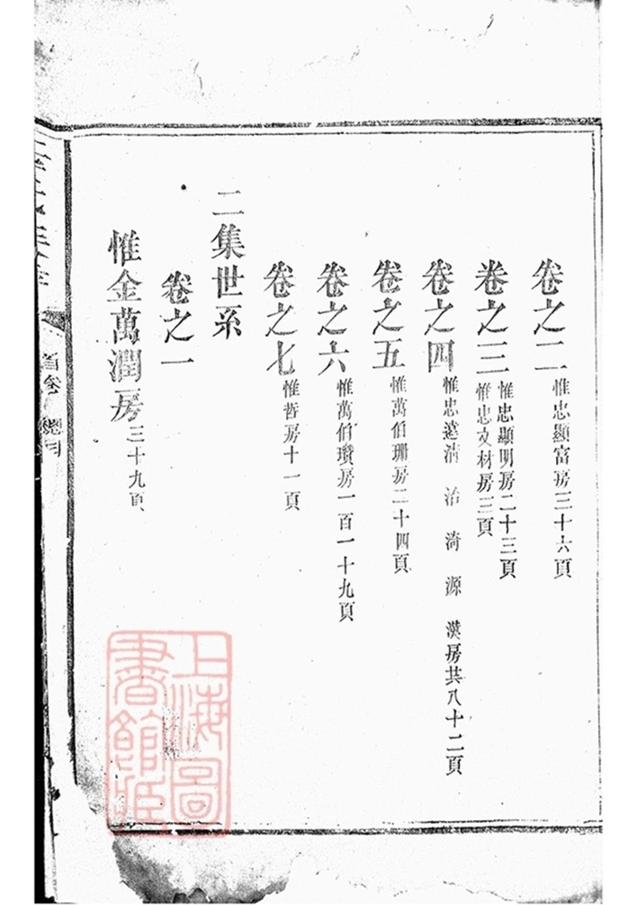 卷之二 惟忠顯富房三十六頁
卷之三 惟忠顯明房二十三頁
惟忠文材房三頁
卷之四 惟忠遠清治漪源漢房共八十二頁
卷之五 惟萬伯珊房二十四頁
卷之六 惟萬伯瓚房一百一十九頁
卷之七 惟哲房十一頁
二集世系
卷之一
惟金萬潤房三十九頁
首卷 總目
上海圖
書館藏